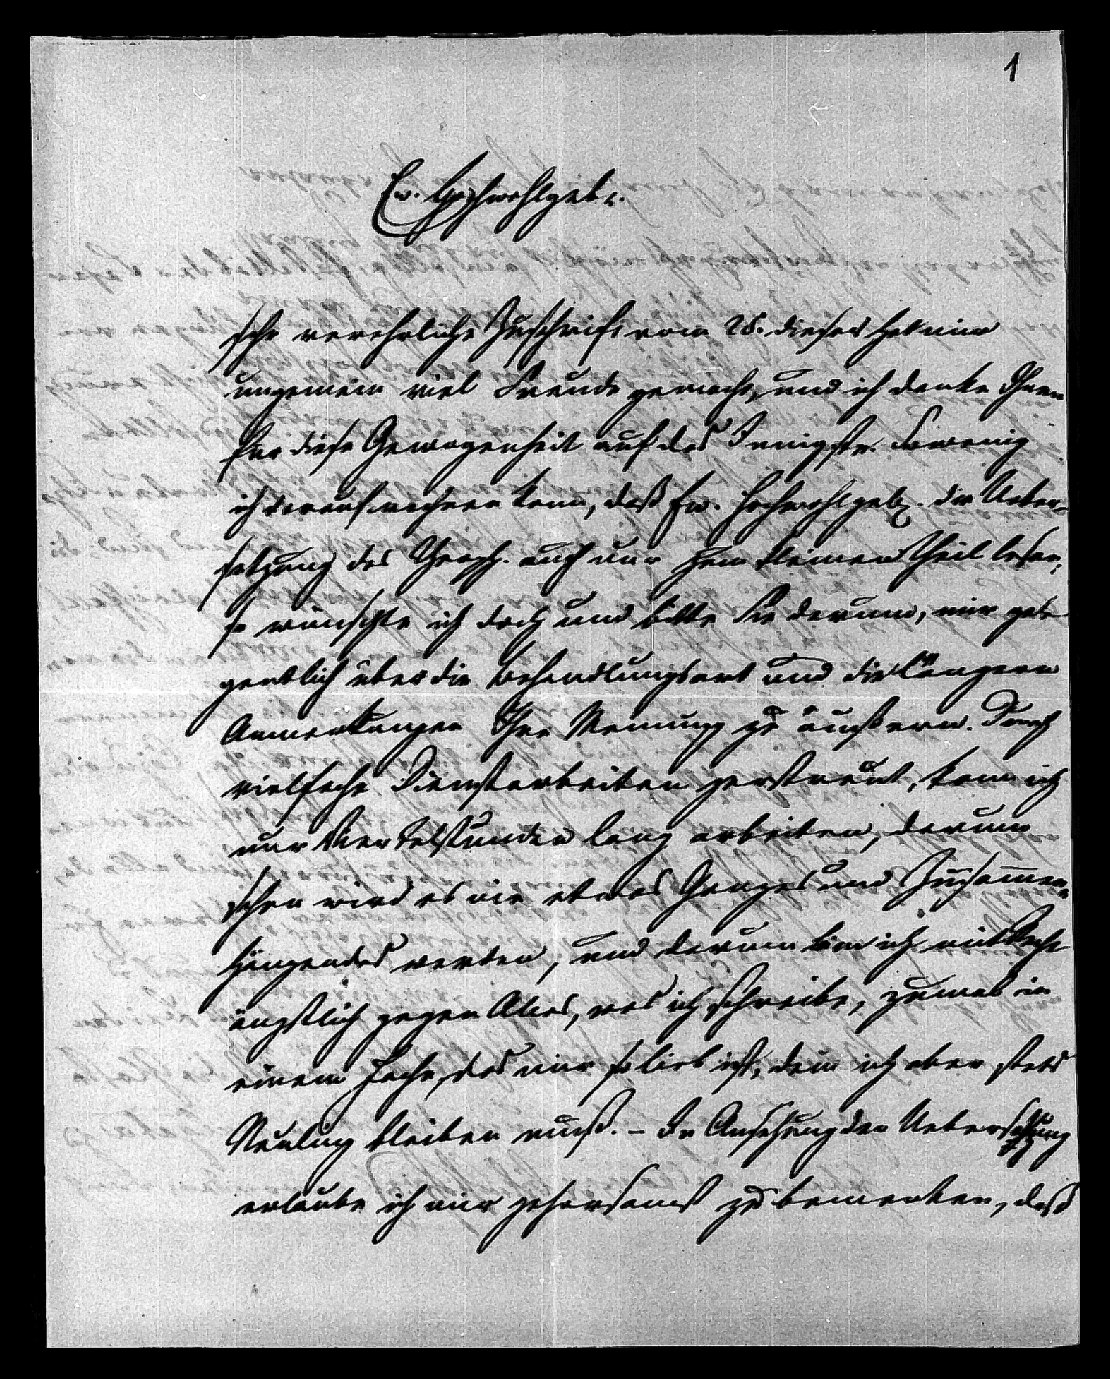 1
Ew. Hochwohlgeb.
sehr verehrliche Zuschrift vom 28. dieses hat mir
ungemein viel Freude gemacht, und ich danke Ihnen
für diese Gewogenheit auf das Innigste. So wenig
ich darauf rechnen kann, daß Ew. Hochwohlgeb. die Ueber-
setzung des Theoph. auch nur zum kleinen Theil lesen,
so wünschte ich doch und bitte Sie darum, mir gele-
gentlich über die Behandlungsart und die längern
Anmerkungen Ihre Meinung zu äußern. Durch
vielfache Dienstarbeiten zerstreut, kann ich
nur Viertelstunden lang arbeiten, darum
schon wird es nie etwas Ganzes und Zusamen-
hängendes werden, und darum bin ich mit Recht
ängstlich gegen Alles, was ich schreibe, zumal in
einem Fache, das mir so lieb ist, dem ich aber stets
Neuling bleiben muß. – In Ansehung der Uebersetzung
erlaube ich mir gehorsamst zu bemerken, daß